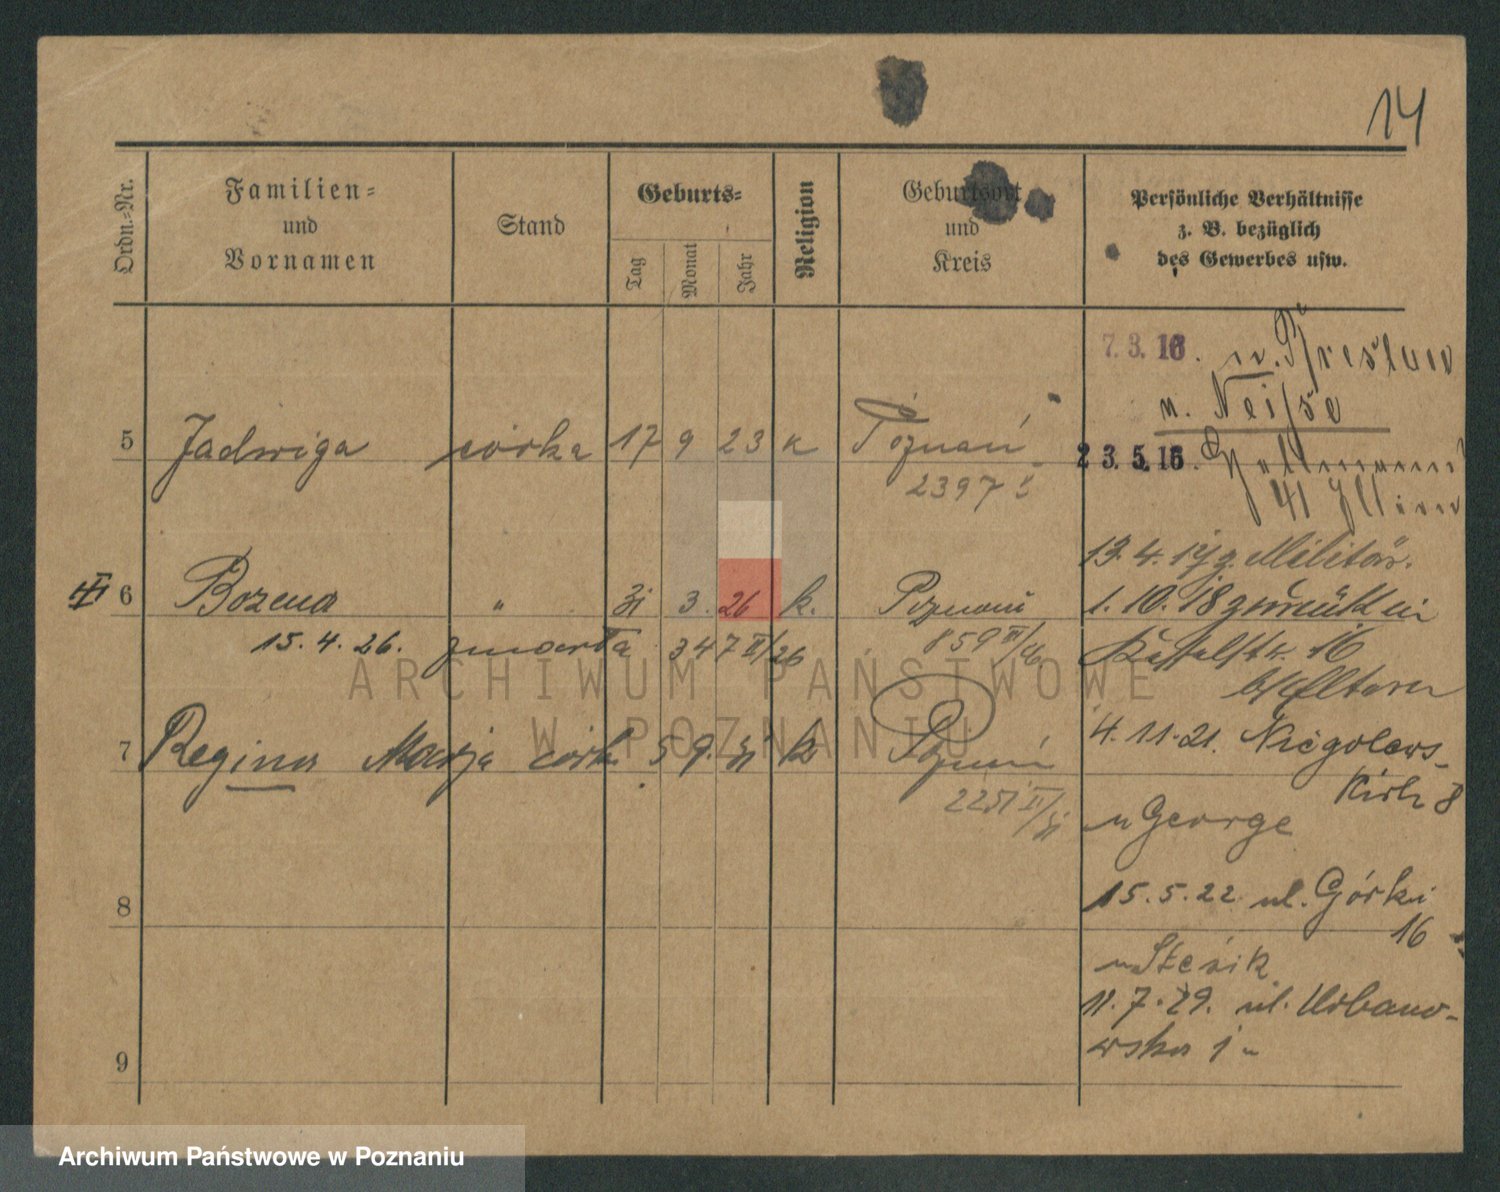 14
Ordn.-Nr.
Familien-
und
Vornamen
Stand
Geburts-
Tag
Monat
Jahr
Religion
Geburtsort
und
Kreis
Persönliche Verhältnisse
z. B. bezüglich
des Gewerbes usw.
7. 3. 16. n. Breslau
n. Neisse
5 Jadwiga córka 17 9 23 k Poznań
23. 5. 16.
2397
13. 4. 17 z. Militär.
6 Bozena " 31 3. 26 k. Poznań
1. 10. 18 zurück in
15. 4. 26. zmarła 347 II/26
859 III/26
16
b/Eltern
7 Regina Marja córk 5 9. 31 k Poznań
4. 11. 21.
Kirch 8
2251 II/31
n George
8
15. 5. 22. ul. Górki
16
11. 7. 29. ul. Urbanow-
wska 1
9
ARCHIWUM PAŃSTWOWE
W POZNANIU
Archiwum Państwowe w Poznaniu